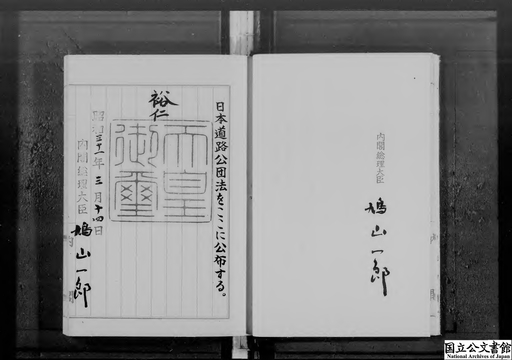 内閣総理大臣
鳩山一郎
日本道路公団法をここに公布する。
裕仁
天皇
御璽
昭和三十一年三月十四日
内閣総理大臣
鳩山一郎
国立公文書館
National Archives of Japan